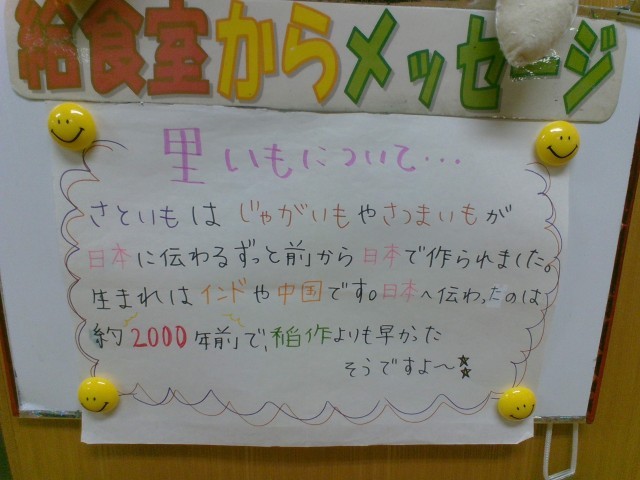 給食室からメッセージ
里いもについて・・・
さといもは じゃがいもやさつまいもが
日本に伝わるずっと前から日本で作られました。
生まれはインドや中国です。日本へ伝わったのは
約2000年前で、稲作よりも早かった
そうですよ〜